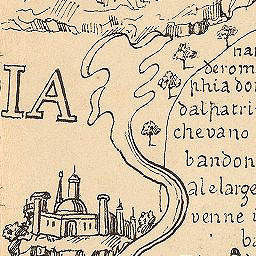 nar
derom
IA
phia do
dal patri
che vano
bandon
ale large
venne i
ba